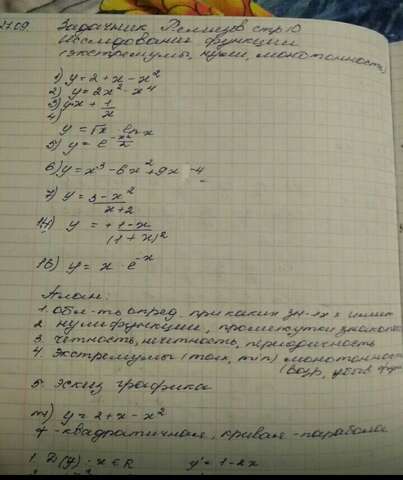 27.09 Задачник Ремизов стр 10
Исследование функции
(экстремумы, нули, монотонность)
1) y = 2 + x - x²
2) y = 2x² - x⁴
3) y = x + 1/x
4)
y = √x ln x
5) y = e^(-x²/2)
6) y = x³ - 6x² + 9x - 4
7) y = (3 - x²)/(x + 2)
14) y = + (1 - x)/(1 + x)²
16) y = x · e^(-x)
План:
1. Обл-ть опред. при каких зн-ях x имеет
2. нули функции, промежутки знакопо
3. чётность, нечётность, периодичность
4. Экстремумы (max, min) монотонность
(возр, убыв. фун
5. эскиз графика
y = 2 + x - x²
- квадратичная, кривая - парабола
1. D(y) - x ∈ R y' = 1 - 2x